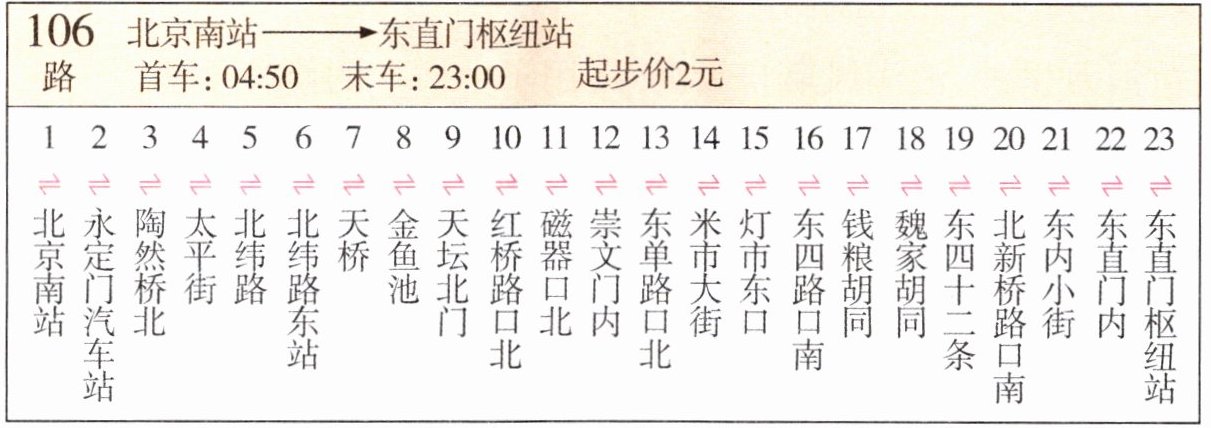 106路 北京南站——→东直门枢纽站
首车：04:50 末车：23:00 起步价2元
1 ⇌ 北京南站
2 ⇌ 永定门汽车站
3 ⇌ 陶然桥北
4 ⇌ 太平街
5 ⇌ 北纬路
6 ⇌ 北纬路东站
7 ⇌ 天桥
8 ⇌ 金鱼池
9 ⇌ 天坛北门
10 ⇌ 红桥路口北
11 ⇌ 磁器口北
12 ⇌ 崇文门内
13 ⇌ 东单路口北
14 ⇌ 米市大街
15 ⇌ 灯市东口
16 ⇌ 东四路口南
17 ⇌ 钱粮胡同
18 ⇌ 魏家胡同
19 ⇌ 东四十二条
20 ⇌ 北新桥路口南
21 ⇌ 东内小街
22 ⇌ 东直门内
23 ⇌ 东直门枢纽站